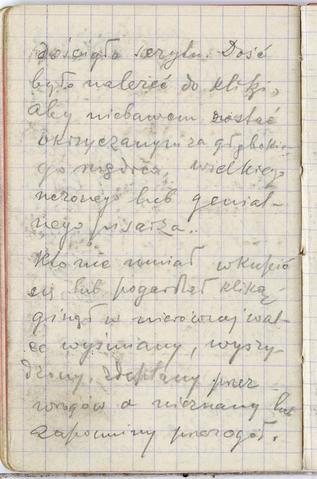 dościgła szczytu. Dość
było należeć do kliki,
aby niebawem zostać
okrzyczanym za głębokie-
go mędrca, wielkiego
uczonego lub genial-
nego pisarza.
Kto nie umiał wkupić
się lub pogardzał kliką,
ginął w nierównej wal-
ce wyśmiany, wyszy-
dzony, zdeptany przez
wrogów a nieznany lub
zapomniany przez ogół.